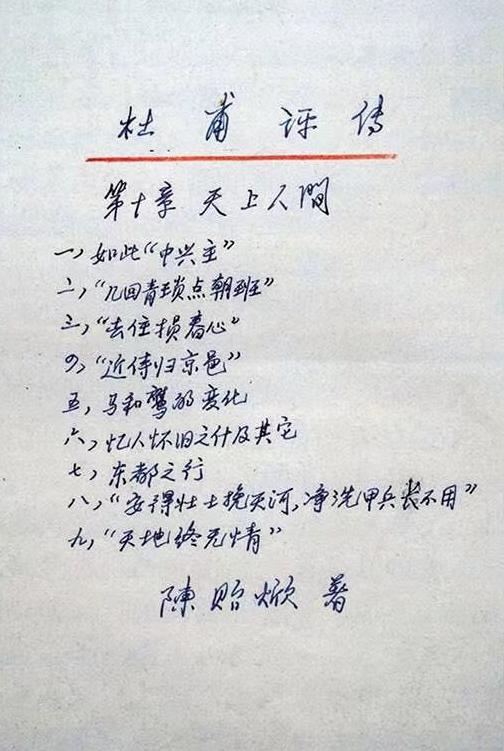 杜甫评传
第十章 天上人間
一、如此“中兴主”
二、“几回青琐点朝班”
三、“去住损春心”
四、“近侍归京邑”
五、马和鹰的变化
六、忆人怀旧之什及其它
七、东都之行
八、“安得壮士挽天河，净洗甲兵长不用”
九、“天地终无情”
陳贻焮 著